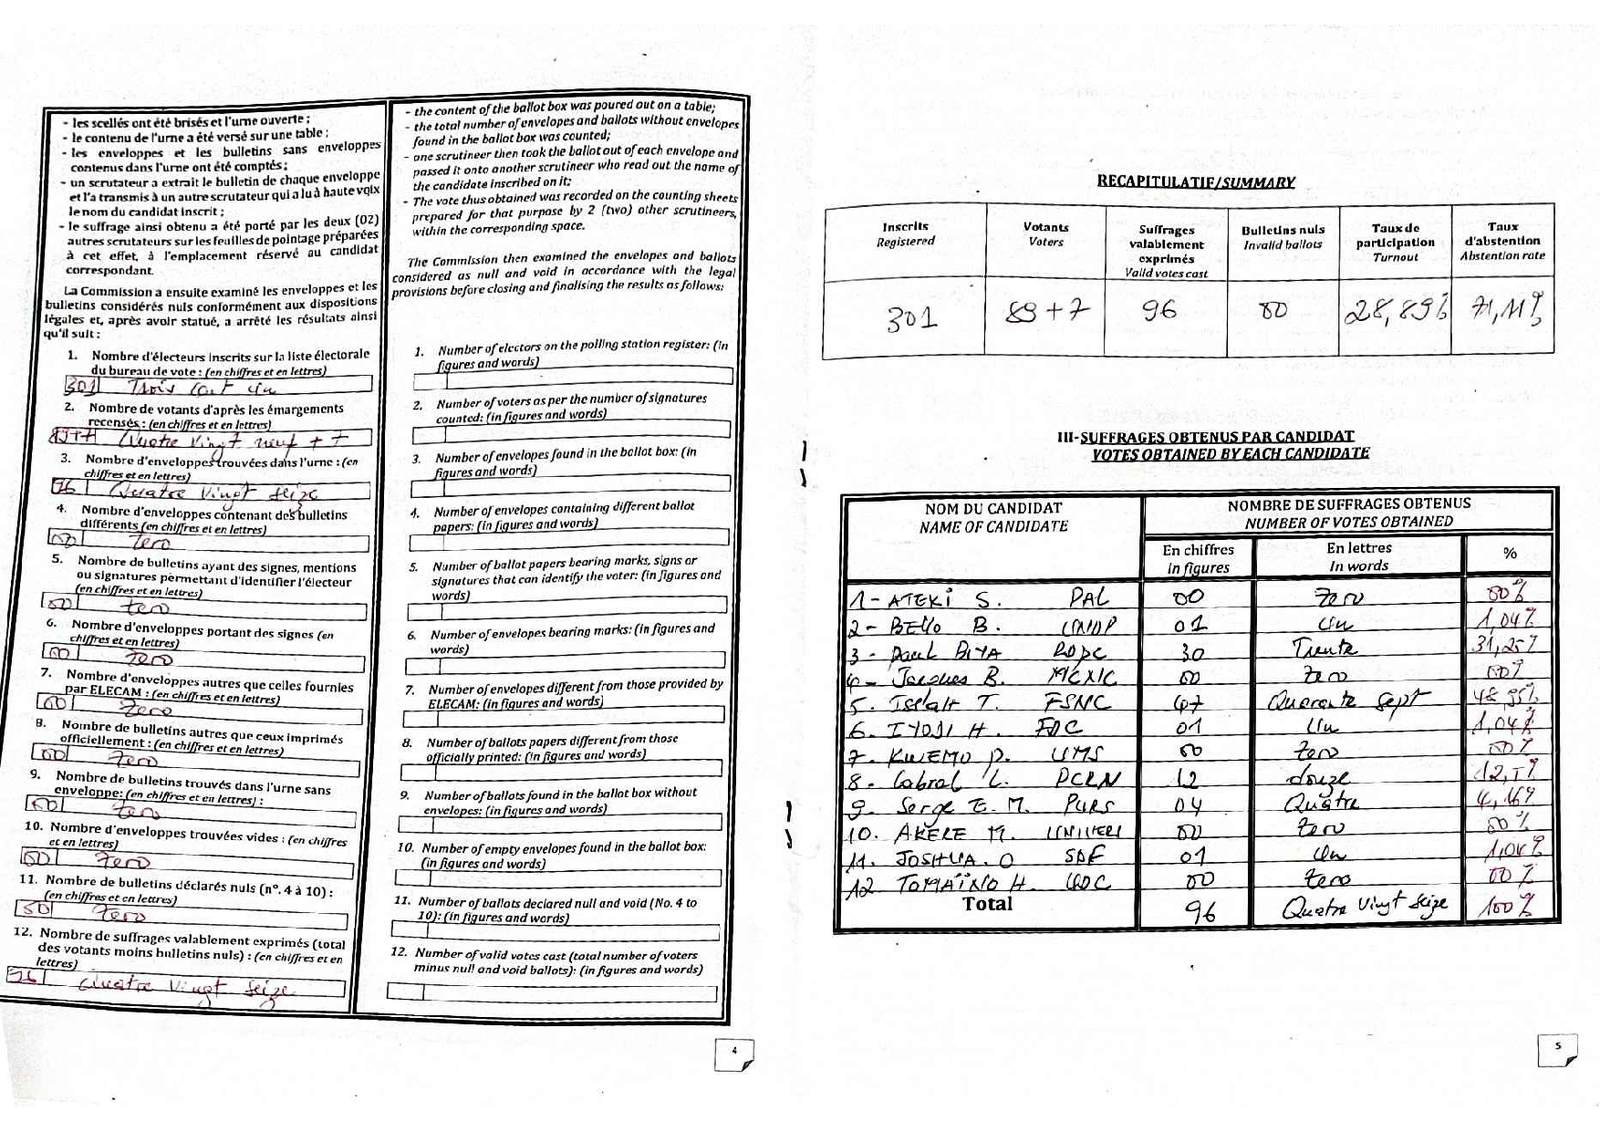 - les scellés ont été brisés et l'urne ouverte ;
- le contenu de l'urne a été versé sur une table ;
- les enveloppes et les bulletins sans enveloppes
contenus dans l'urne ont été comptés ;
- un scrutateur a extrait le bulletin de chaque enveloppe
et l'a transmis à un autre scrutateur qui a lu à haute voix
le nom du candidat inscrit ;
- le suffrage ainsi obtenu a été porté par les deux (02)
autres scrutateurs sur les feuilles de pointage préparées
à cet effet, à l'emplacement réservé au candidat
correspondant.
La Commission a ensuite examiné les enveloppes et les
bulletins considérés nuls conformément aux dispositions
légales et, après avoir statué, a arrêté les résultats ainsi
qu'il suit :
1. Nombre d'électeurs inscrits sur la liste électorale
du bureau de vote : (en chiffres et en lettres)
301 Trois cent un
2. Nombre de votants d'après les émargements
recensés : (en chiffres et en lettres)
89+7 Quatre vingt neuf + 7
3. Nombre d'enveloppes trouvées dans l'urne : (en
chiffres et en lettres)
96 Quatre vingt seize
4. Nombre d'enveloppes contenant des bulletins
différents (en chiffres et en lettres)
00 Zero
5. Nombre de bulletins ayant des signes, mentions
ou signatures permettant d'identifier l'électeur
(en chiffres et en lettres)
00 Zero
6. Nombre d'enveloppes portant des signes (en
chiffres et en lettres)
00 Zero
7. Nombre d'enveloppes autres que celles fournies
par ELECAM : (en chiffres et en lettres)
00 Zero
8. Nombre de bulletins autres que ceux imprimés
officiellement : (en chiffres et en lettres)
00 Zero
9. Nombre de bulletins trouvés dans l'urne sans
enveloppe: (en chiffres et en lettres) :
00 Zero
10. Nombre d'enveloppes trouvées vides : (en chiffres
et en lettres)
00 Zero
11. Nombre de bulletins déclarés nuls (n°. 4 à 10) :
(en chiffres et en lettres)
00 Zero
12. Nombre de suffrages valablement exprimés (total
des votants moins bulletins nuls) : (en chiffres et en
lettres)
96 Quatre vingt seize
- the content of the ballot box was poured out on a table;
- the total number of envelopes and ballots without envelopes
found in the ballot box was counted;
- one scrutineer then took the ballot out of each envelope and
passed it onto another scrutineer who read out the name of
the candidate inscribed on it;
- The vote thus obtained was recorded on the counting sheets
prepared for that purpose by 2 (two) other scrutineers,
within the corresponding space.
The Commission then examined the envelopes and ballots
considered as null and void in accordance with the legal
provisions before closing and finalising the results as follows:
1. Number of electors on the polling station register: (in
figures and words)
2. Number of voters as per the number of signatures
counted: (in figures and words)
3. Number of envelopes found in the ballot box: (in
figures and words)
4. Number of envelopes containing different ballot
papers: (in figures and words)
5. Number of ballot papers bearing marks, signs or
signatures that can identify the voter: (in figures and
words)
6. Number of envelopes bearing marks: (in figures and
words)
7. Number of envelopes different from those provided by
ELECAM: (in figures and words)
8. Number of ballots papers different from those
officially printed: (in figures and words)
9. Number of ballots found in the ballot box without
envelopes: (in figures and words)
10. Number of empty envelopes found in the ballot box:
(in figures and words)
11. Number of ballots declared null and void (No. 4 to
10): (in figures and words)
12. Number of valid votes cast (total number of voters
minus null and void ballots): (in figures and words)
4
RECAPITULATIF/SUMMARY
Inscrits Registered
Votants Voters
Suffrages valablement exprimés Valid votes cast
Bulletins nuls Invalid ballots
Taux de participation Turnout
Taux d'abstention Abstention rate
301 89+7 96 00 28,89% 71,11%
III-SUFFRAGES OBTENUS PAR CANDIDAT
VOTES OBTAINED BY EACH CANDIDATE
NOM DU CANDIDAT NOMBRE DE SUFFRAGES OBTENUS
NAME OF CANDIDATE NUMBER OF VOTES OBTAINED
En chiffres En lettres %
In figures In words
1- ATEKI S. PAL 00 Zero 00%
2- BEllo B. UNDP 01 Un 1,04%
3- Paul BIYA RDPC 30 Trente 31,25%
4- Jacques B. MCNC 00 Zero 00%
5. Issa T. FSNC 47 Quarante sept 48,95%
6. IYODI H. FDC 01 Un 1,04%
7. KWEMO P. UMS 00 Zero 00%
8. Cabral L. PCRN 12 douze 12,5%
9. Serge E. M. PURS 04 Quatre 4,16%
10. AKERE M. UNIVERS 00 Zero 00%
11. JOSHUA. O SDF 01 Un 1,04%
12 TOMAÏNO H. UDC 00 Zero 00%
Total 96 Quatre vingt seize 100%
5